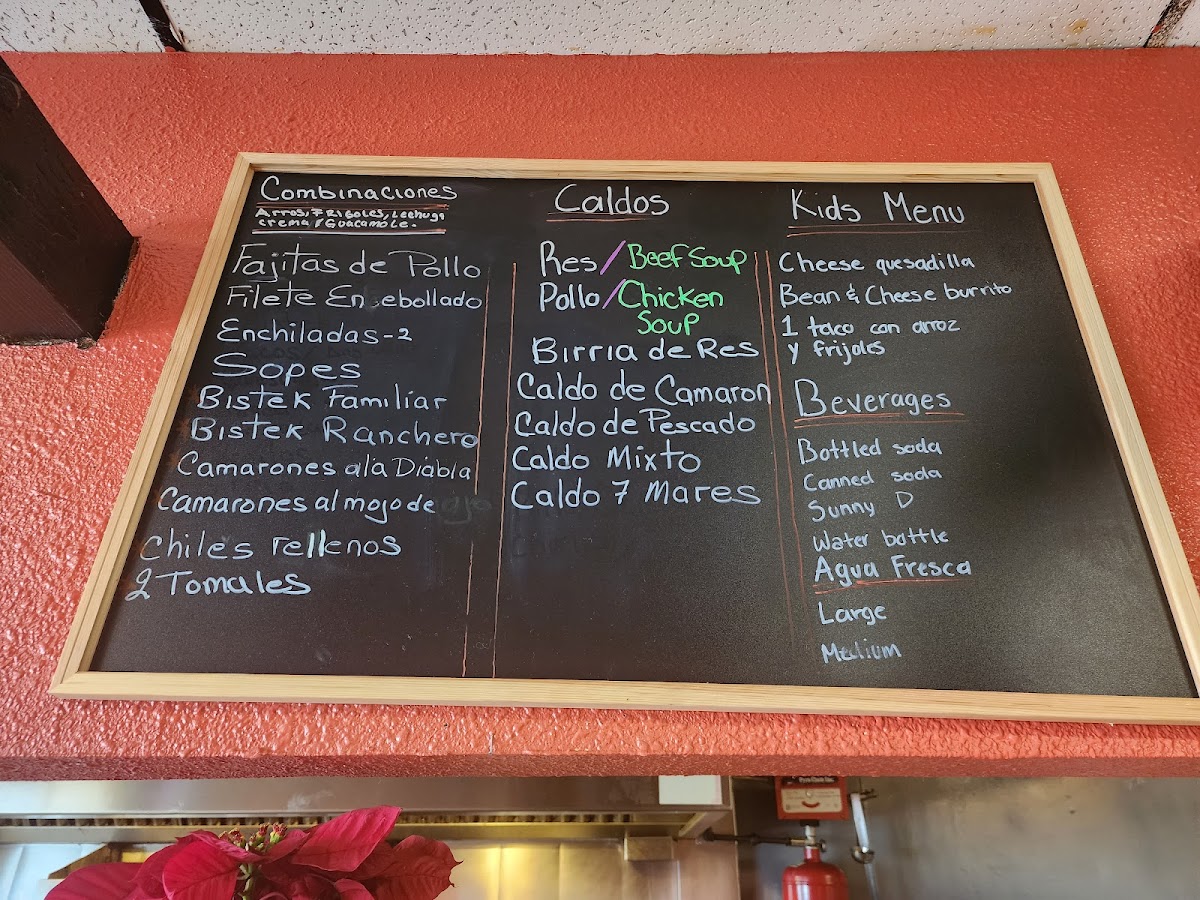 Combinaciones
Arros, FRigoles, Lechuga
crema y Guacamole.-
Fajitas de Pollo
Filete Encebollado
Enchiladas-2
Sopes
Bistek Familiar
Bistek Ranchero
Camarones a la Diabla
Camarones al mojo de ajo
chiles rellenos
2 Tomales
Caldos
Res/Beef Soup
Pollo/Chicken
Soup
Birria de Res
Caldo de Camaron
Caldo de Pescado
Caldo Mixto
Caldo 7 Mares
Kids Menu
Cheese quesadilla
Bean & Cheese burrito
1 taco con arroz
y frijoles
Beverages
Bottled soda
Canned soda
Sunny D
Water bottle
Agua Fresca
Large
Medium